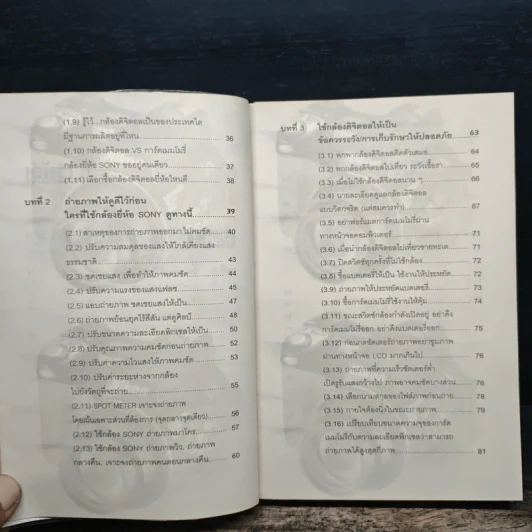 (1.9) รู้ไว้...กล้องดิจิตอลเป็นของประเทศใด
มีฐานการผลิตอยู่ที่ไหน 36
(1.10) กล้องดิจิตอล VS การ์ดเมมโมรี่
กล้องยี่ห้อ SONY ขออยู่คนเดียว 37
(1.11) เลือกซื้อกล้องดิจิตอลยี่ห้อไหนดี 38
บทที่ 2 ถ่ายภาพให้ดูดีไว้ก่อน
ใครที่ใช้กล้องยี่ห้อ SONY ดูทางนี้... 39
(2.1) สาเหตุของการถ่ายภาพออกมาไม่คมชัด 40
(2.2) ปรับความสมดุลของแสงให้ใกล้เคียงแสง
ธรรมชาติ 43
(2.3) ชดเชยแสง เพื่อทำให้ภาพคมชัด 44
(2.4) ปรับความแรงของแสงแฟลช 45
(2.5) แอบถ่ายภาพ ชดเชยแสงให้เป็น 47
(2.6) ถ่ายภาพย้อนยุคไร้สีสัน แต่ดูศิลป์ 48
(2.7) ปรับขนาดความละเอียดพิกเซลให้เป็น 50
(2.8) ปรับคุณภาพความคมชัดก่อนถ่ายภาพ 52
(2.9) ปรับค่าความไวแสงให้ภาพคมชัด 53
(2.10) ปรับค่าระยะห่างจากกล้อง
ไปยังวัตถุที่จะถ่าย 55
(2.11) SPOT METER เจาะจงถ่ายภาพ
โดยเน้นเฉพาะส่วนที่ต้องการ (จุดกลางจุดเดียว) 56
(2.12) ใช้กล้อง SONY ถ่ายภาพมาโคร 57
(2.13) ใช้กล้อง SONY ถ่ายภาพวิว, ถ่ายภาพ
กลางคืน, เจาะจงถ่ายภาพคนตอนกลางคืน 60
บทที่ 3 ใช้กล้องดิจิตอลให้เป็น
ข้อควรระวัง/การเก็บรักษาให้ปลอดภัย 63
(3.1) พกพากล้องดิจิตอลติดตัวเสมอ
(3.2) พกกล้องดิจิตอลไปเที่ยว ระวังเชื้อรา
(3.3) เมื่อไม่ใช้กล้องดิจิตอลนาน ๆ
(3.4) นายละเอียดดูแลกล้องดิจิตอล
แบบวิตกจริต (แต่สมควรทำ)
(3.5) อย่าฟอร์แมตการ์ดเมมโมรี่ผ่าน
ทางหน้าจอคอมพิวเตอร์
(3.6) เมื่อนำกล้องดิจิตอลไปเที่ยวชายทะเล 71
(3.7) ปิดสวิตช์ทุกครั้งที่ไม่ใช้กล้อง 71
(3.8) ซื้อแบตเตอรี่ให้เป็น ใช้งานให้ประหยัด 72
(3.9) ถ่ายภาพให้ประหยัดแบตเตอรี่ 74
(3.10) ซื้อการ์ดเมมโมรี่ใช้งานให้คุ้ม 74
(3.11) ขณะสวิตช์กล้องกำลังเปิดอยู่ อย่าดึง
การ์ดเมมโมรี่ออก อย่าดึงแบตเตอรี่ออก 75
(3.12) ก่อนกดชัตเตอร์ถ่ายภาพอย่าซูมภาพ
ผ่านทางหน้าจอ LCD มากเกินไป 76
(3.13) ถ่ายภาพที่ความเร็วชัตเตอร์ต่ำ
เปิดรูรับแสงกว้างไป ภาพอาจคมชัดบางส่วน 76
(3.14) เลือกนามสกุลของไฟล์ภาพก่อนถ่าย 78
(3.15) กายใจต้องนิ่งในขณะถ่ายภาพ 79
(3.16) เปรียบเทียบขนาดความจุของการ์ด
เมมโมรี่กับความละเอียดพิกเซลว่าสามารถ
ถ่ายภาพได้สูงสุดกี่ภาพ 81